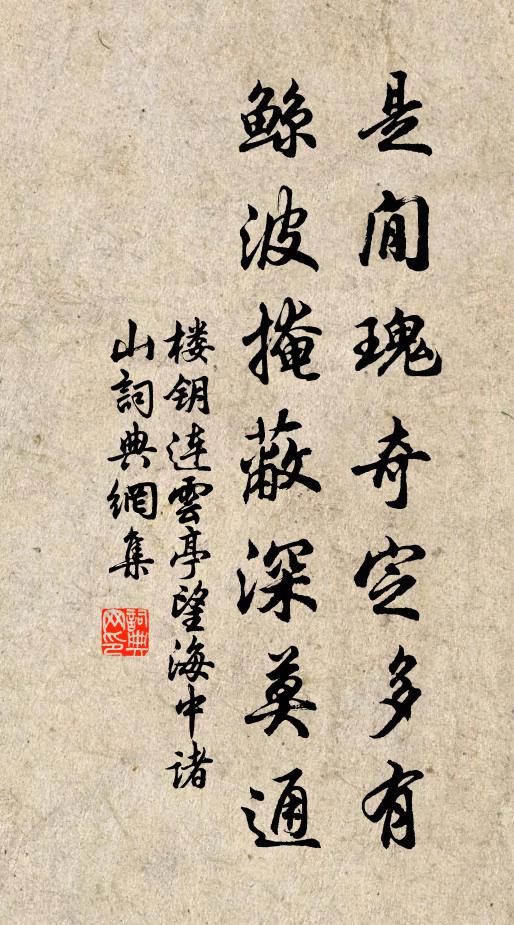 是閒瑰奇定多有
鲸波掩蔽深莫通
楼钥连雲亭望海中诸
山詞典網集
詞典
网印